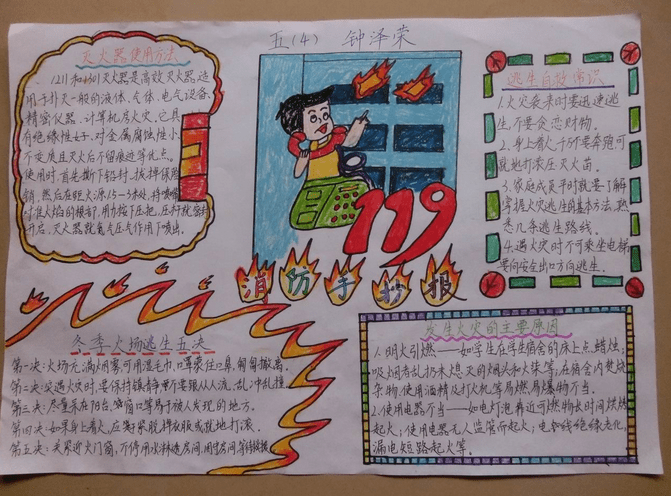 五(4) 钟泽荣
灭火器使用方法
1211和1301灭火器是高效灭火器,适
用于扑灭一般的液体、气体、电气设备、
精密仪器、计算机房火灾。它具
有绝缘性好,对金属腐蚀性小、
不变质且灭火后不留痕迹等优点。
使用时,首先撕下铅封,拔掉保险
销,然后在距火源1.5—3米处,将喷嘴
对准火焰的根部,用力按下压把,压杆就
开启,灭火器就氮气压气作用下喷出。
119
消防手抄报
逃生自救常识
1.火灾袭来时要迅速逃
生,不要贪恋财物。
2.身上着火,千万不要奔跑可
就地打滚压灭火苗。
3.家庭成员平时就要了解
掌握火灾逃生的基本方法,熟
悉几条逃生路线。
4.遇火灾时不可乘坐电梯
要向安全出口方向逃生。
冬季火场逃生五决
第一决:火场充满烟雾,可用湿毛巾、口罩衣住口鼻,匍匐撤离。
第二决:突遇火灾时,要保持镇静,千万不要跟从人流、乱冲乱撞。
第三决:尽量呆在阳台、窗口等易于被人发现的地方。
第四决:如果身上着火,应赶紧脱掉衣服或就地打滚。
第五决:关紧近火门窗,不停用水淋透房间,固守房间等待救援。
发生火灾的主要原因
1.明火引燃——如学生在学生宿舍的床上点蜡烛;
吸烟者乱扔未熄灭的烟火和火柴等,在宿舍内焚烧
杂物,使用酒精及打火机等易燃易爆物不当。
2.使用电器不当——如电灯泡靠近可燃物长时间烘烤
起火;使用电器无人监管而起火;电气线绝缘老化,
漏电短路起火等。